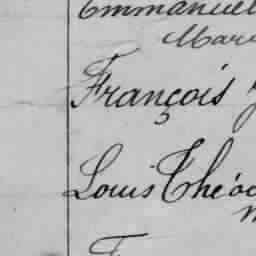 Emmanuel
Mar
François
Louis Théo